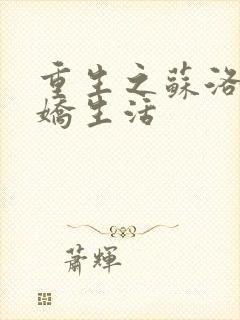 重生之蘇洛
嬌生活
蕭輝